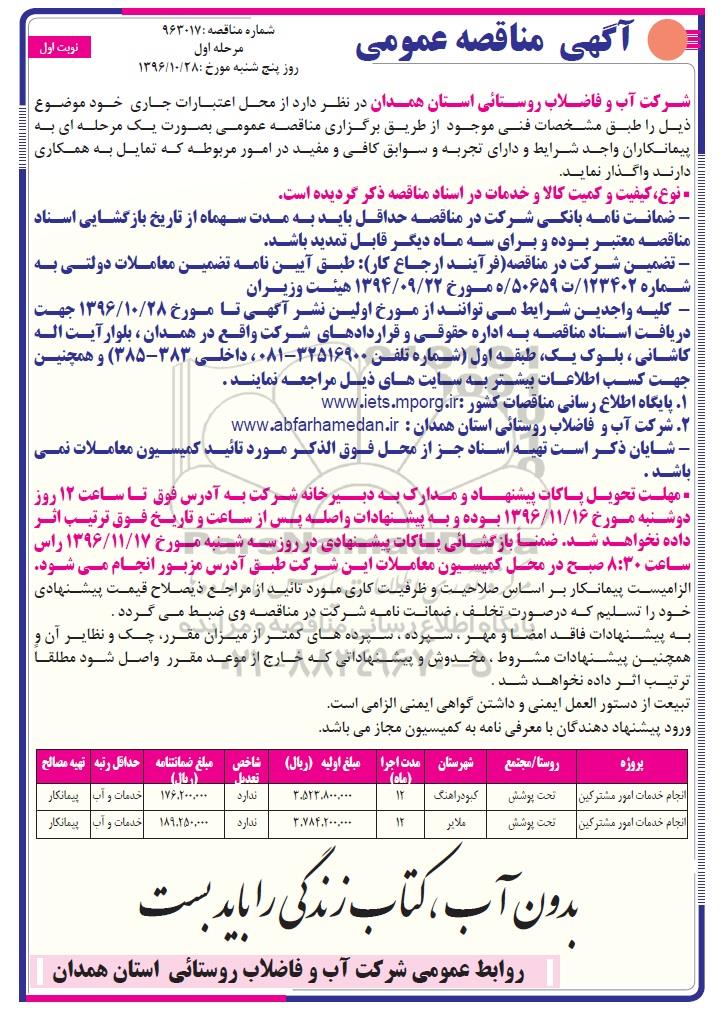 آگهی مناقصه عمومی
شماره مناقصه :۹۶۳۰۱۷
مرحله اول
روز پنج شنبه مورخ :۱۳۹۶/۱۰/۲۸
نوبت اول
شرکت آب و فاضلاب روستائی استان همدان در نظر دارد از محل اعتبارات جاری خود موضوع
ذیل را طبق مشخصات فنی موجود از طریق برگزاری مناقصه عمومی بصورت یک مرحله ای به
پیمانکاران واجد شرایط و دارای تجربه و سوابق کافی و مفید در امور مربوطه که تمایل به همکاری
دارند واگذار نماید.
▪ نوع،کیفیت و کمیت کالا و خدمات در اسناد مناقصه ذکر گردیده است.
– ضمانت نامه بانکی شرکت در مناقصه حداقل باید به مدت سه‌ماه از تاریخ بازگشایی اسناد
مناقصه معتبر بوده و برای سه ماه دیگر قابل تمدید باشد.
– تضمین شرکت در مناقصه(فرآیند ارجاع کار): طبق آیین نامه تضمین معاملات دولتی به
شماره ۱۲۳۴۰۲/ت ۵۰۶۵۹/ه مورخ ۱۳۹۴/۰۹/۲۲ هیئت وزیران
– کلیه واجدین شرایط می توانند از مورخ اولین نشر آگهی تا مورخ ۱۳۹۶/۱۰/۲۸ جهت
دریافت اسناد مناقصه به اداره حقوقی و قراردادهای شرکت واقع در همدان ، بلوارآیت اله
کاشانی ، بلوک یک، طبقه اول (شماره تلفن ۳۲۵۱۶۹۰۰-۰۸۱ ، داخلی ۳۸۳-۳۸۵) و همچنین
جهت کسب اطلاعات بیشتر به سایت های ذیل مراجعه نمایند .
۱. پایگاه اطلاع رسانی مناقصات کشور :www.iets.mporg.ir
۲. شرکت آب و فاضلاب روستائی استان همدان : www.abfarhamedan.ir
– شایان ذکر است تهیه اسناد جز از محل فوق الذکر مورد تائید کمیسیون معاملات نمی
باشد .
▪ مهلت تحویل پاکات پیشنهاد و مدارک به دبیرخانه شرکت به آدرس فوق تا ساعت ۱۲ روز
دوشنبه مورخ ۱۳۹۶/۱۱/۱۶ بوده و به پیشنهادات واصله پس از ساعت و تاریخ فوق ترتیب اثر
داده نخواهد شد. ضمناً بازگشائی پاکات پیشنهادی در روزسه شنبه مورخ ۱۳۹۶/۱۱/۱۷ راس
ساعت ۸:۳۰ صبح در محل کمیسیون معاملات این شرکت طبق آدرس مزبور انجام می شود.
الزامیست پیمانکار بر اساس صلاحیت و ظرفیت کاری مورد تائید از مراجع ذیصلاح قیمت پیشنهادی
خود را تسلیم که درصورت تخلف ، ضمانت نامه شرکت در مناقصه وی ضبط می گردد .
به پیشنهادات فاقد امضا و مهر ، سپرده ، سپرده های کمتر از میزان مقرر، چک و نظایر آن و
همچنین پیشنهادات مشروط ، مخدوش و پیشنهاداتی که خارج از موعد مقرر واصل شود مطلقاً
ترتیب اثر داده نخواهد شد .
تبیعت از دستور العمل ایمنی و داشتن گواهی ایمنی الزامی است.
ورود پیشنهاد دهندگان با معرفی نامه به کمیسیون مجاز می باشد.
پروژه روستا/مجتمع شهرستان مدت اجرا (ماه) مبلغ اولیه (ریال) شاخص تعدیل مبلغ ضمانتنامه (ریال) حداقل رتبه تهیه مصالح
انجام خدمات امور مشترکین تحت پوشش کبودراهنگ ۱۲ ۳.۵۲۳.۸۰۰.۰۰۰ ندارد ۱۷۶.۲۰۰.۰۰۰ خدمات و آب پیمانکار
انجام خدمات امور مشترکین تحت پوشش ملایر ۱۲ ۳.۷۸۴.۲۰۰.۰۰۰ ندارد ۱۸۹.۲۵۰.۰۰۰ خدمات و آب پیمانکار
بدون آب ، کتاب زندگی را باید بست
روابط عمومی شرکت آب و فاضلاب روستائی استان همدان
پایگاه اطلاع رسانی مناقصه و مزایده
۰۲۱-۸۸۳۴۹۶۷۰-۵